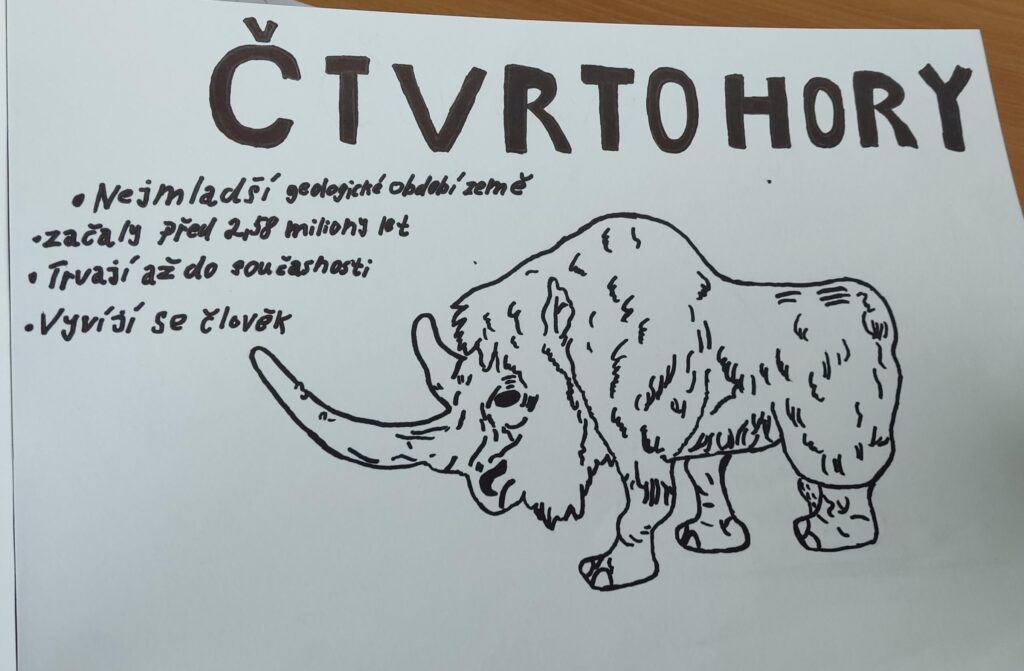 ČTVRTOHORY
• Nejmladší geologické období země
• začaly před 2,58 miliony let
• Trvají až do současnosti
• Vyvíjí se člověk